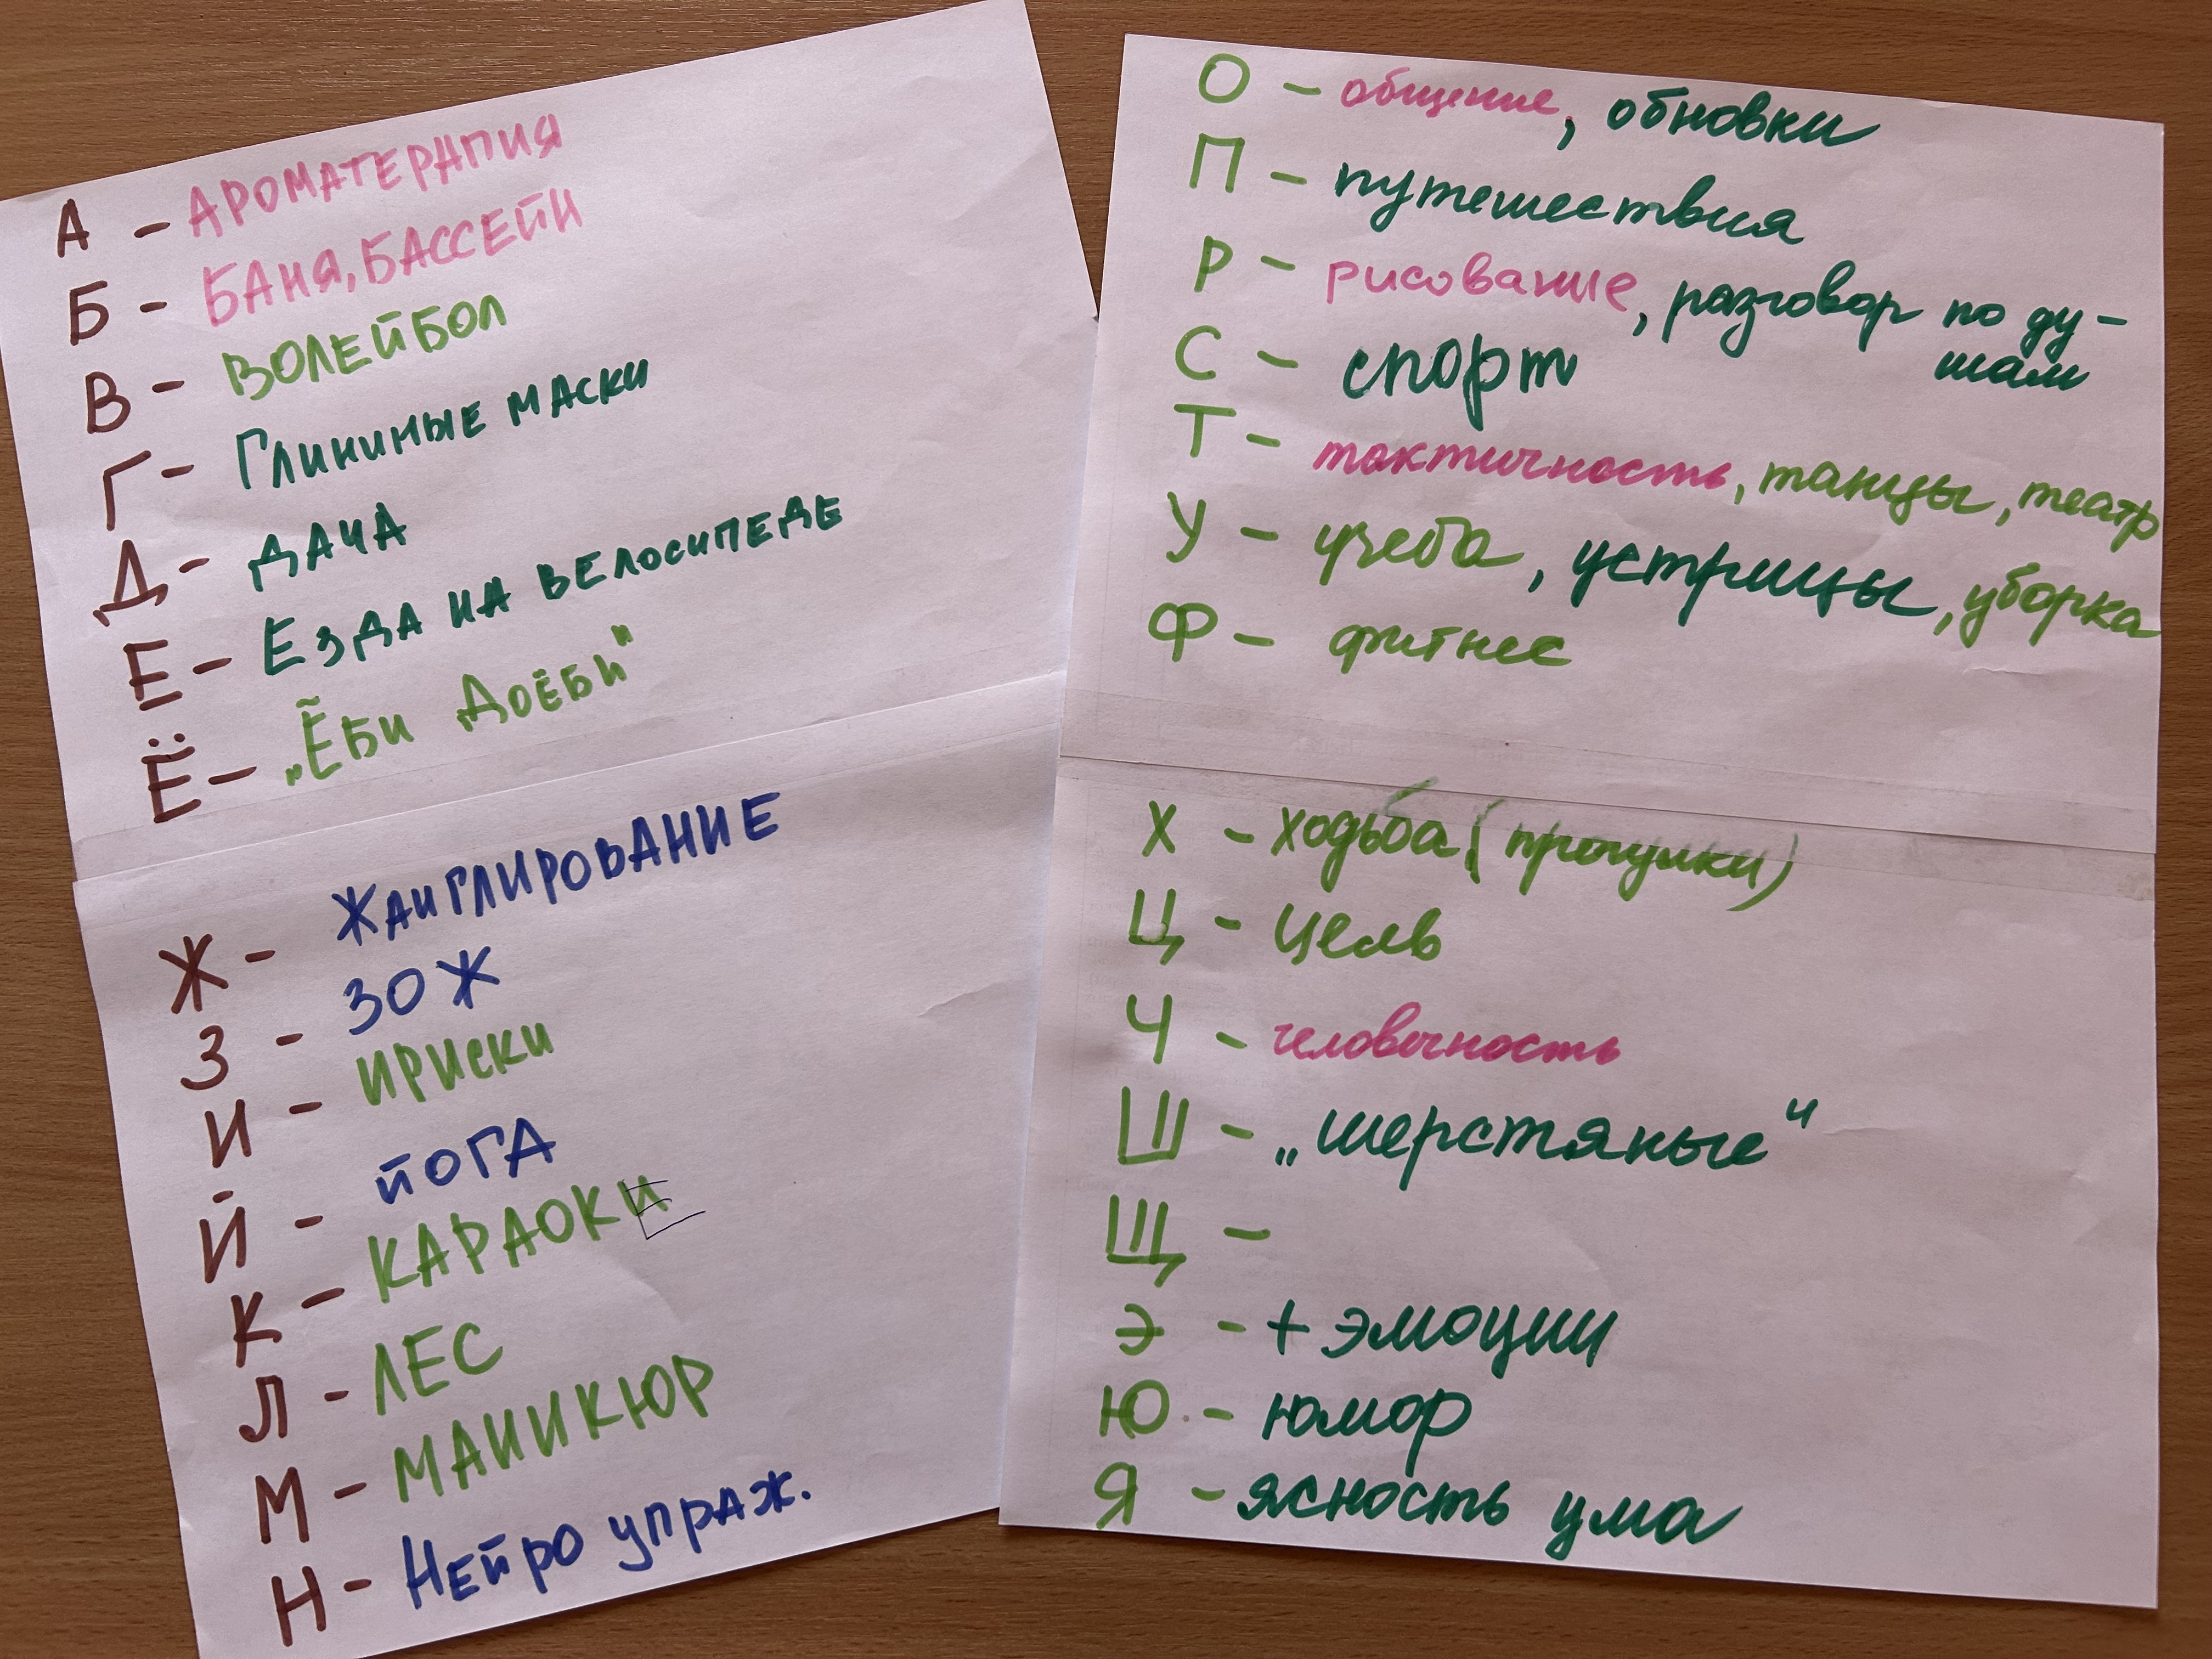 А - АРОМАТЕРАПИЯ
Б - БАНЯ, БАССЕЙН
В - ВОЛЕЙБОЛ
Г - Глининые маски
Д - ДАЧА
Е - Езда на велосипеде
Ё - „Ёби Доёби"
Ж - Жанглирование
З - ЗОЖ
И - ИРИСКИ
Й - ЙОГА
К - КАРАОКЕ
Л - ЛЕС
М - МАНИКЮР
Н - Нейро упраж.
О - общение, обновки
П - путешествия
Р - рисование, разговор по ду-
шам
С - спорт
Т - тактичность, танцы, театр
У - учеба, устрицы, уборка
Ф - фитнес
Х - ходьба (прогулки)
Ц - цель
Ч - человечность
Ш - „шерстяные"
Щ -
Э - + эмоции
Ю - юмор
Я - ясность ума